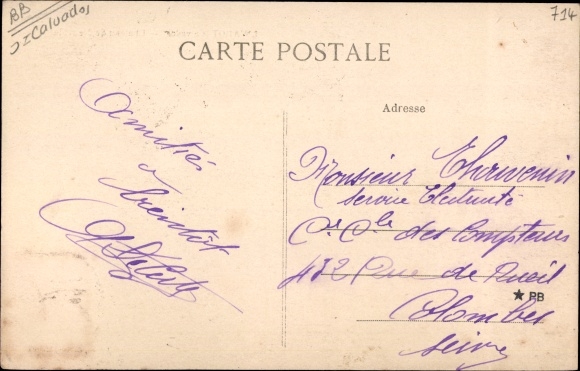 BB
Calvados
714
CARTE POSTALE
Adresse
Amitiés
à bientôt
Monsieur Thouvenin
Service Electricité
Cie Cle des Compteurs
432 Rue de Rueil
★ PB
Colombes
Seine